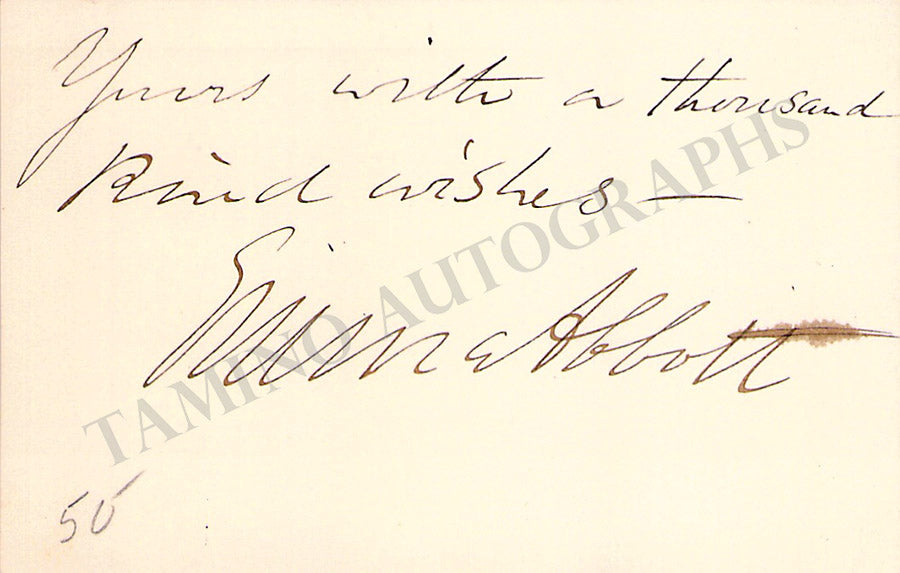 Yours with a thousand
Kind wishes —
Emma Abbott
TAMINO AUTOGRAPHS
50